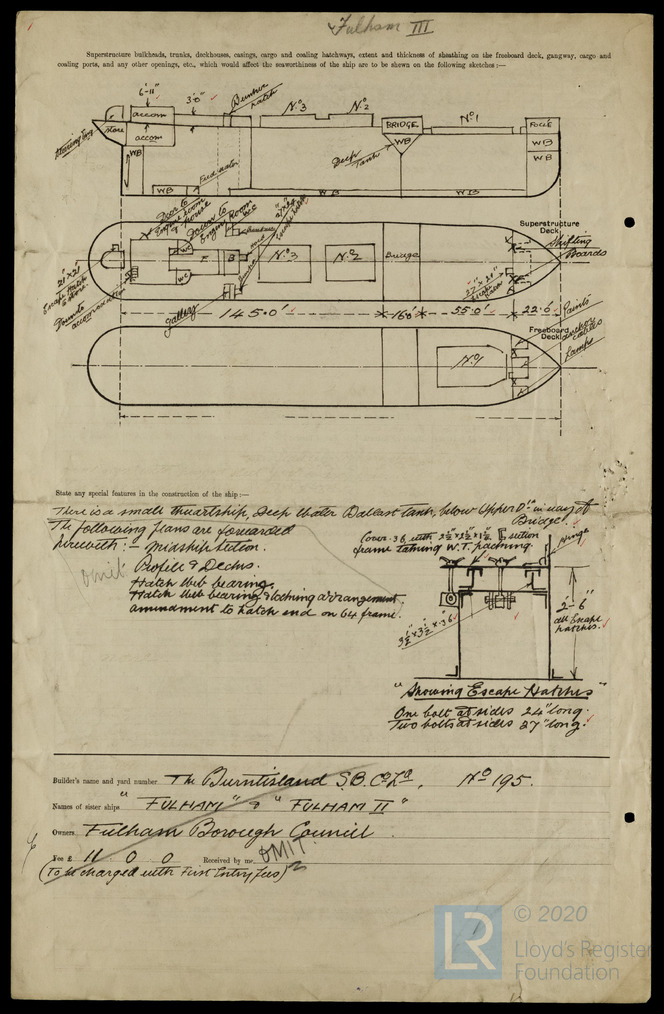 Fulham III
Superstructure bulkheads, trunks, deckhouses, casings, cargo and coaling hatchways, extent and thickness of sheathing on the freeboard deck, gangway, cargo and
coaling ports, and any other openings, etc., which would affect the seaworthiness of the ship are to be shewn on the following sketches:—
6'-11"
3'-0"
Bunker
hatch
accom
store
accom
Nº3
Nº2
BRIDGE
Nº1
FOCLE
WB
WB
WB
WB
Deep
Tank
Feed water
WB
WB
WB
Door to
Engine Room
Door to
Engine Room
Superstructure
Deck
Shifting
Boards
W.C
W.C
F
B
Nº3
Nº2
Bridge
21" x 21"
Escape Hatch
27" x 24"
gallery
145.0'
16.0'
55.0'
22.6'
Paints
Freeboard
Deck
anchor
cables
Lamps
Nº1
State any special features in the construction of the ship:—
There is a small thwartship, Deep Water Ballast Tank, below Upper Dk in way of
Bridge.
The following plans are forwarded
herewith:- Midship Section.
Profile & Decks.
Hatch Web bearing.
Hatch Web bearing & locking arrangement
amendment to hatch end on 64 frame.
Omit
hinge
frame taking W.T. packing.
2'-6"
all Escape
hatches.
"Showing Escape Hatches"
One bolt at sides 24" long.
Two bolts at sides 27" long.
Builder's name and yard number The Burntisland S.B. Co Ld, Nº 195.
Names of sister ships "FULHAM" & "FULHAM II"
Owners Fulham Borough Council
Fee £ 11 0 0 Received by me, OMIT.
(To be charged with First Entry fees)
LR
© 2020
Lloyd's Register
Foundation